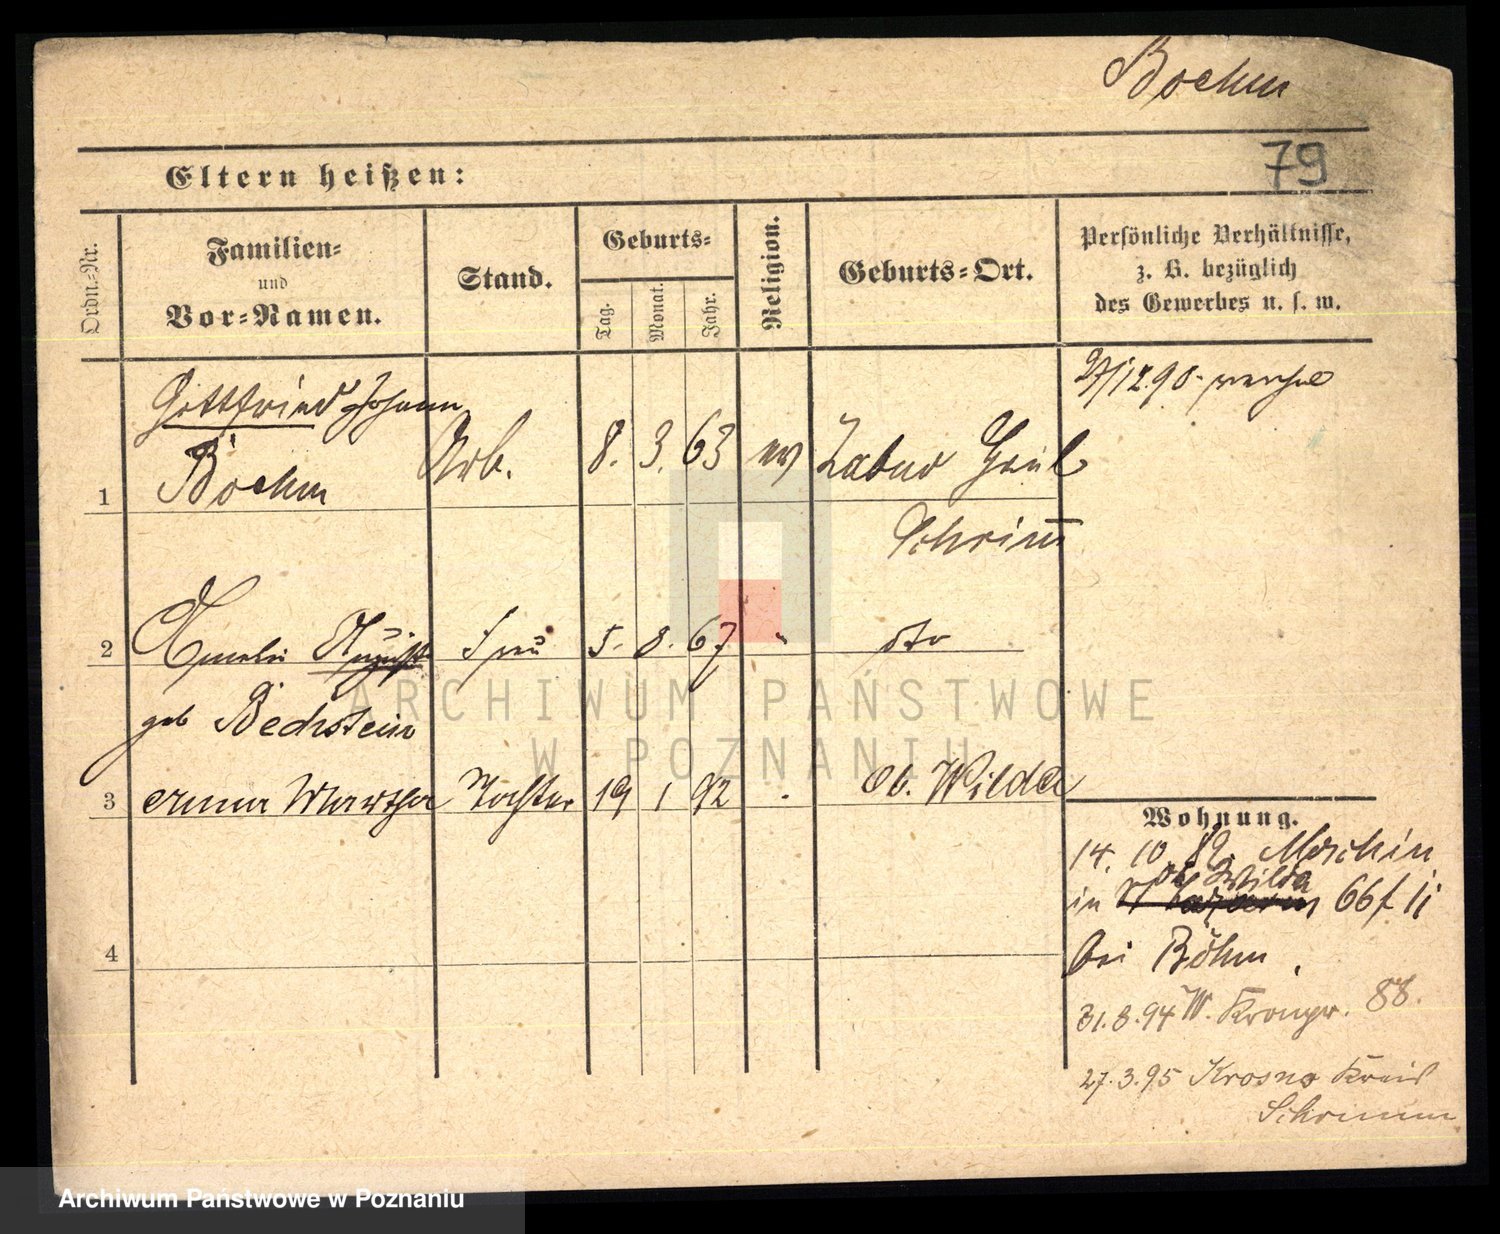 Boehm
79
Eltern heißen:
Ordn.-Nr.
Familien-
und
Vor-Namen.
Stand.
Geburts-
Tag.
Monat.
Jahr.
Religion.
Geburts-Ort.
Persönliche Verhältnisse,
z. B. bezüglich
des Gewerbes u. s. w.
Gottfried Johann
1 Boehm Arb. 8. 3. 63 ev
Schrimm
2 August 5. 8. 67 dto
geb Bechstein
3 Emma Martha Tochter 19 1 92 Ob. Wilda
4
27/12 90.
Wohnung.
14. 10 Moschin
Ob Wilda
in 66f
bei Böhm.
31. 8. 94 W. Kronpr. 88.
27. 3. 95 Krosno Kreis
Schrimm
ARCHIWUM PAŃSTWOWE
W POZNANIU
Archiwum Państwowe w Poznaniu